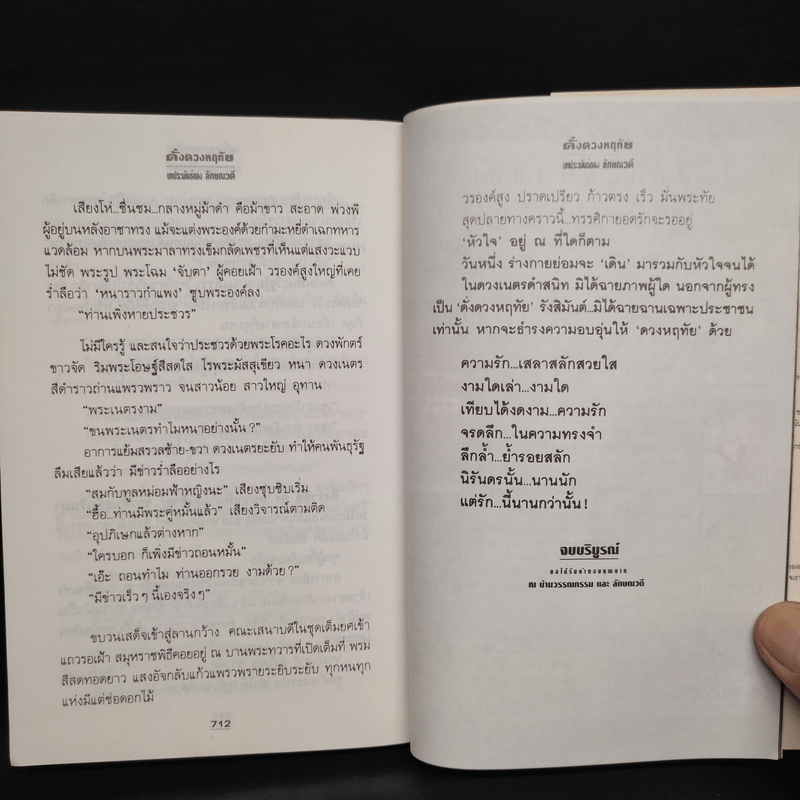 ดั่งดวงหฤทัย
บทประพันธ์ของ ลักษณวดี
เสียงโห่...ชื่นชม...กลางหมู่ม้าดำ คือม้าขาว สะอาด พ่วงพี
ผู้อยู่บนหลังอาชาทรง แม้จะแต่งพระองค์ด้วยกำมะหยี่ดำเฉกทหาร
แวดล้อม หากบนพระมาลาทรงเข็มกลัดเพชรที่เห็นแต่แสงวะแวบ
ไม่ชัด พระรูป พระโฉม ‘จับตา’ ผู้คอยเฝ้า วรองค์สูงใหญ่ที่เคย
ร่ำลือว่า ‘หนาราวกำแพง’ ซูบพระองค์ลง
“ท่านเพิ่งหายประชวร”
ไม่มีใครรู้ และสนใจว่าประชวรด้วยพระโรคอะไร ดวงพักตร์
ขาวจัด ริมพระโอษฐ์สีสดใส ไรพระมัสสุเขียว หนา ดวงเนตร
สีดำราวถ่านแพรวพราว จนสาวน้อย สาวใหญ่ อุทาน
“พระเนตรงาม”
“ขนพระเนตรทำไมหนาอย่างนั้น ?”
อาการแย้มสรวลซ้าย-ขวา ดวงเนตรยะยับ ทำให้คนพันธุรัฐ
ลืมเสียแล้วว่า มีข่าวร่ำลืออย่างไร
“สมกับทูลหม่อมฟ้าหญิงนะ” เสียงซุบซิบเริ่ม
“ฮื้อ...ท่านมีพระคู่หมั้นแล้ว” เสียงวิจารณ์ตามติด
“อุปภิเษกแล้วต่างหาก”
“ใครบอก ก็เพิ่งมีข่าวถอนหมั้น”
“เอ๊ะ ถอนทำไม ท่านออกรวย งามด้วย ?”
“มีข่าวเร็ว ๆ นี้เองจริง ๆ”
ขบวนเสด็จเข้าสู่ลานกว้าง คณะเสนาบดีในชุดเต็มยศเข้า
แถวรอเฝ้า สมุหราชพิธีคอยอยู่ ณ บานพระทวารที่เปิดเต็มที่ พรม
สีสดทอดยาว แสงอัจกลับแก้วแพรวพรายระยิบระยับ ทุกหนทุก
แห่งมีแต่ช่อดอกไม้
712
ดั่งดวงหฤทัย
บทประพันธ์ของ ลักษณวดี
วรองค์สูง ปราดเปรียว ก้าวตรง เร็ว มั่นพระทัย
สุดปลายทางคราวนี้...ทรรศิกายอดรักจะรออยู่
‘หัวใจ’ อยู่ ณ ที่ใดก็ตาม
วันหนึ่ง ร่างกายย่อมจะ ‘เดิน’ มารวมกับหัวใจจนได้
ในดวงเนตรดำสนิท มิได้ฉายภาพผู้ใด นอกจากผู้ทรง
เป็น ‘ดั่งดวงหฤทัย’ รังสิมันต์...มิได้ฉายฉานเฉพาะประชาชน
เท่านั้น หากจะธำรงความอบอุ่นให้ ‘ดวงหฤทัย’ ด้วย
ความรัก...เสลาสลักสวยใส
งามใดเล่า...งามใด
เทียบได้งดงาม...ความรัก
จรดลึก...ในความทรงจำ
ลึกล้ำ...ย้ำรอยสลัก
นิรันดรนั้น...นานนัก
แต่รัก...นี้นานกว่านั้น !
จบบริบูรณ์
ขอได้รับคำขอบคุณจาก
ณ บ้านวรรณกรรม และ ลักษณวดี